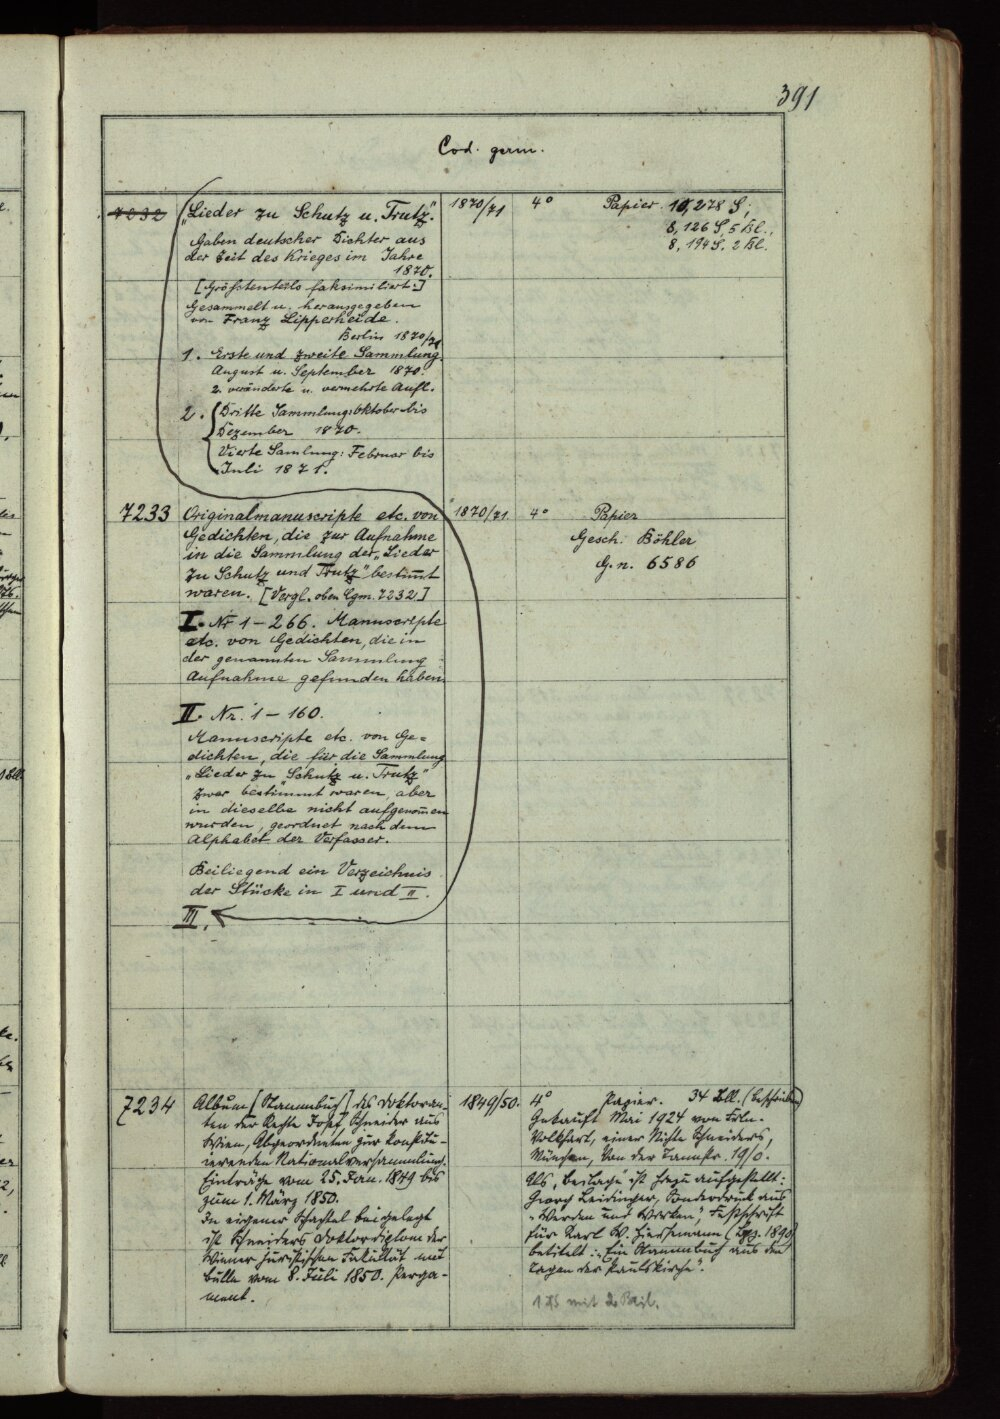 391
Cod. germ.
7232
„Lieder zu Schutz u. Trutz."
Gaben deutscher Dichter aus
der Zeit des Krieges im Jahre
1870.
[Grösstenteils faksimiliert.]
Gesammelt u. herausgegeben
von Franz Lipperheide.
Berlin 1870/71
1. Erste und zweite Sammlung
August u. September 1870.
2. veränderte u. vermehrte Aufl.
2. Dritte Sammlung: Oktober bis
Dezember 1870.
Vierte Samlung: Februar bis
Juli 1871.
1870/71
4°
Papier. 10, 278 S;
8, 126 S, 5 Bl.,
8, 194 S. 2 Bl.
7233
Originalmanuscripte etc. von
Gedichten, die zur Aufnahme
in die Sammlung der „Lieder
zu Schutz und Trutz" bestimt
waren. [Vergl. oben Cgm. 7232]
I. Nr 1 – 266. Manuscripte
etc. von Gedichten, die in
der genannten Sammlung
Aufnahme gefunden haben.
II. Nr. 1 – 160.
Manuscripte etc. von Ge=
dichten, die für die Sammlung
„Lieder zu Schutz u. Trutz"
zwar bestimmt waren, aber
in dieselbe nicht aufgenomen
wurden, geordnet nach dem
Alphabet der Verfasser.
Beiliegend ein Verzeichnis
der Stücke in I und II.
III.
1870/71.
4°
Papier
Gesch. Böhler
G. n. 6586
7234
Album [Stammbuch] des Doktoran-
ten der Rechte Josef Schneider aus
Wien, Abgeordneten zur konstitu-
ierenden Nationalversammlung.
Einträge vom 25. Jan. 1849 bis
zum 1. März 1850.
In eigener Schachtel beigelegt
ist Schneiders Doktordiplom der
Wiener juristischen Fakultät mit
Bulle vom 8. Juli 1850. Perga-
ment.
1849/50.
4°
Papier. 34 Bll. (beschrieben)
Gekauft Mai 1924 von Frln.
Volkhart, einer Nichte Schneiders,
München, Von der Tannstr. 19/0.
Als „Beilage" ist hiezu aufgestellt:
Georg Leidinger, Sonderdruck aus
„Werden und Wirken", Festschrift
für Karl W. Hiersemann (Lpz. 1890)
betitelt: „Ein Stammbuch aus den
Tagen der Paulskirche".
mit 2 Beil.